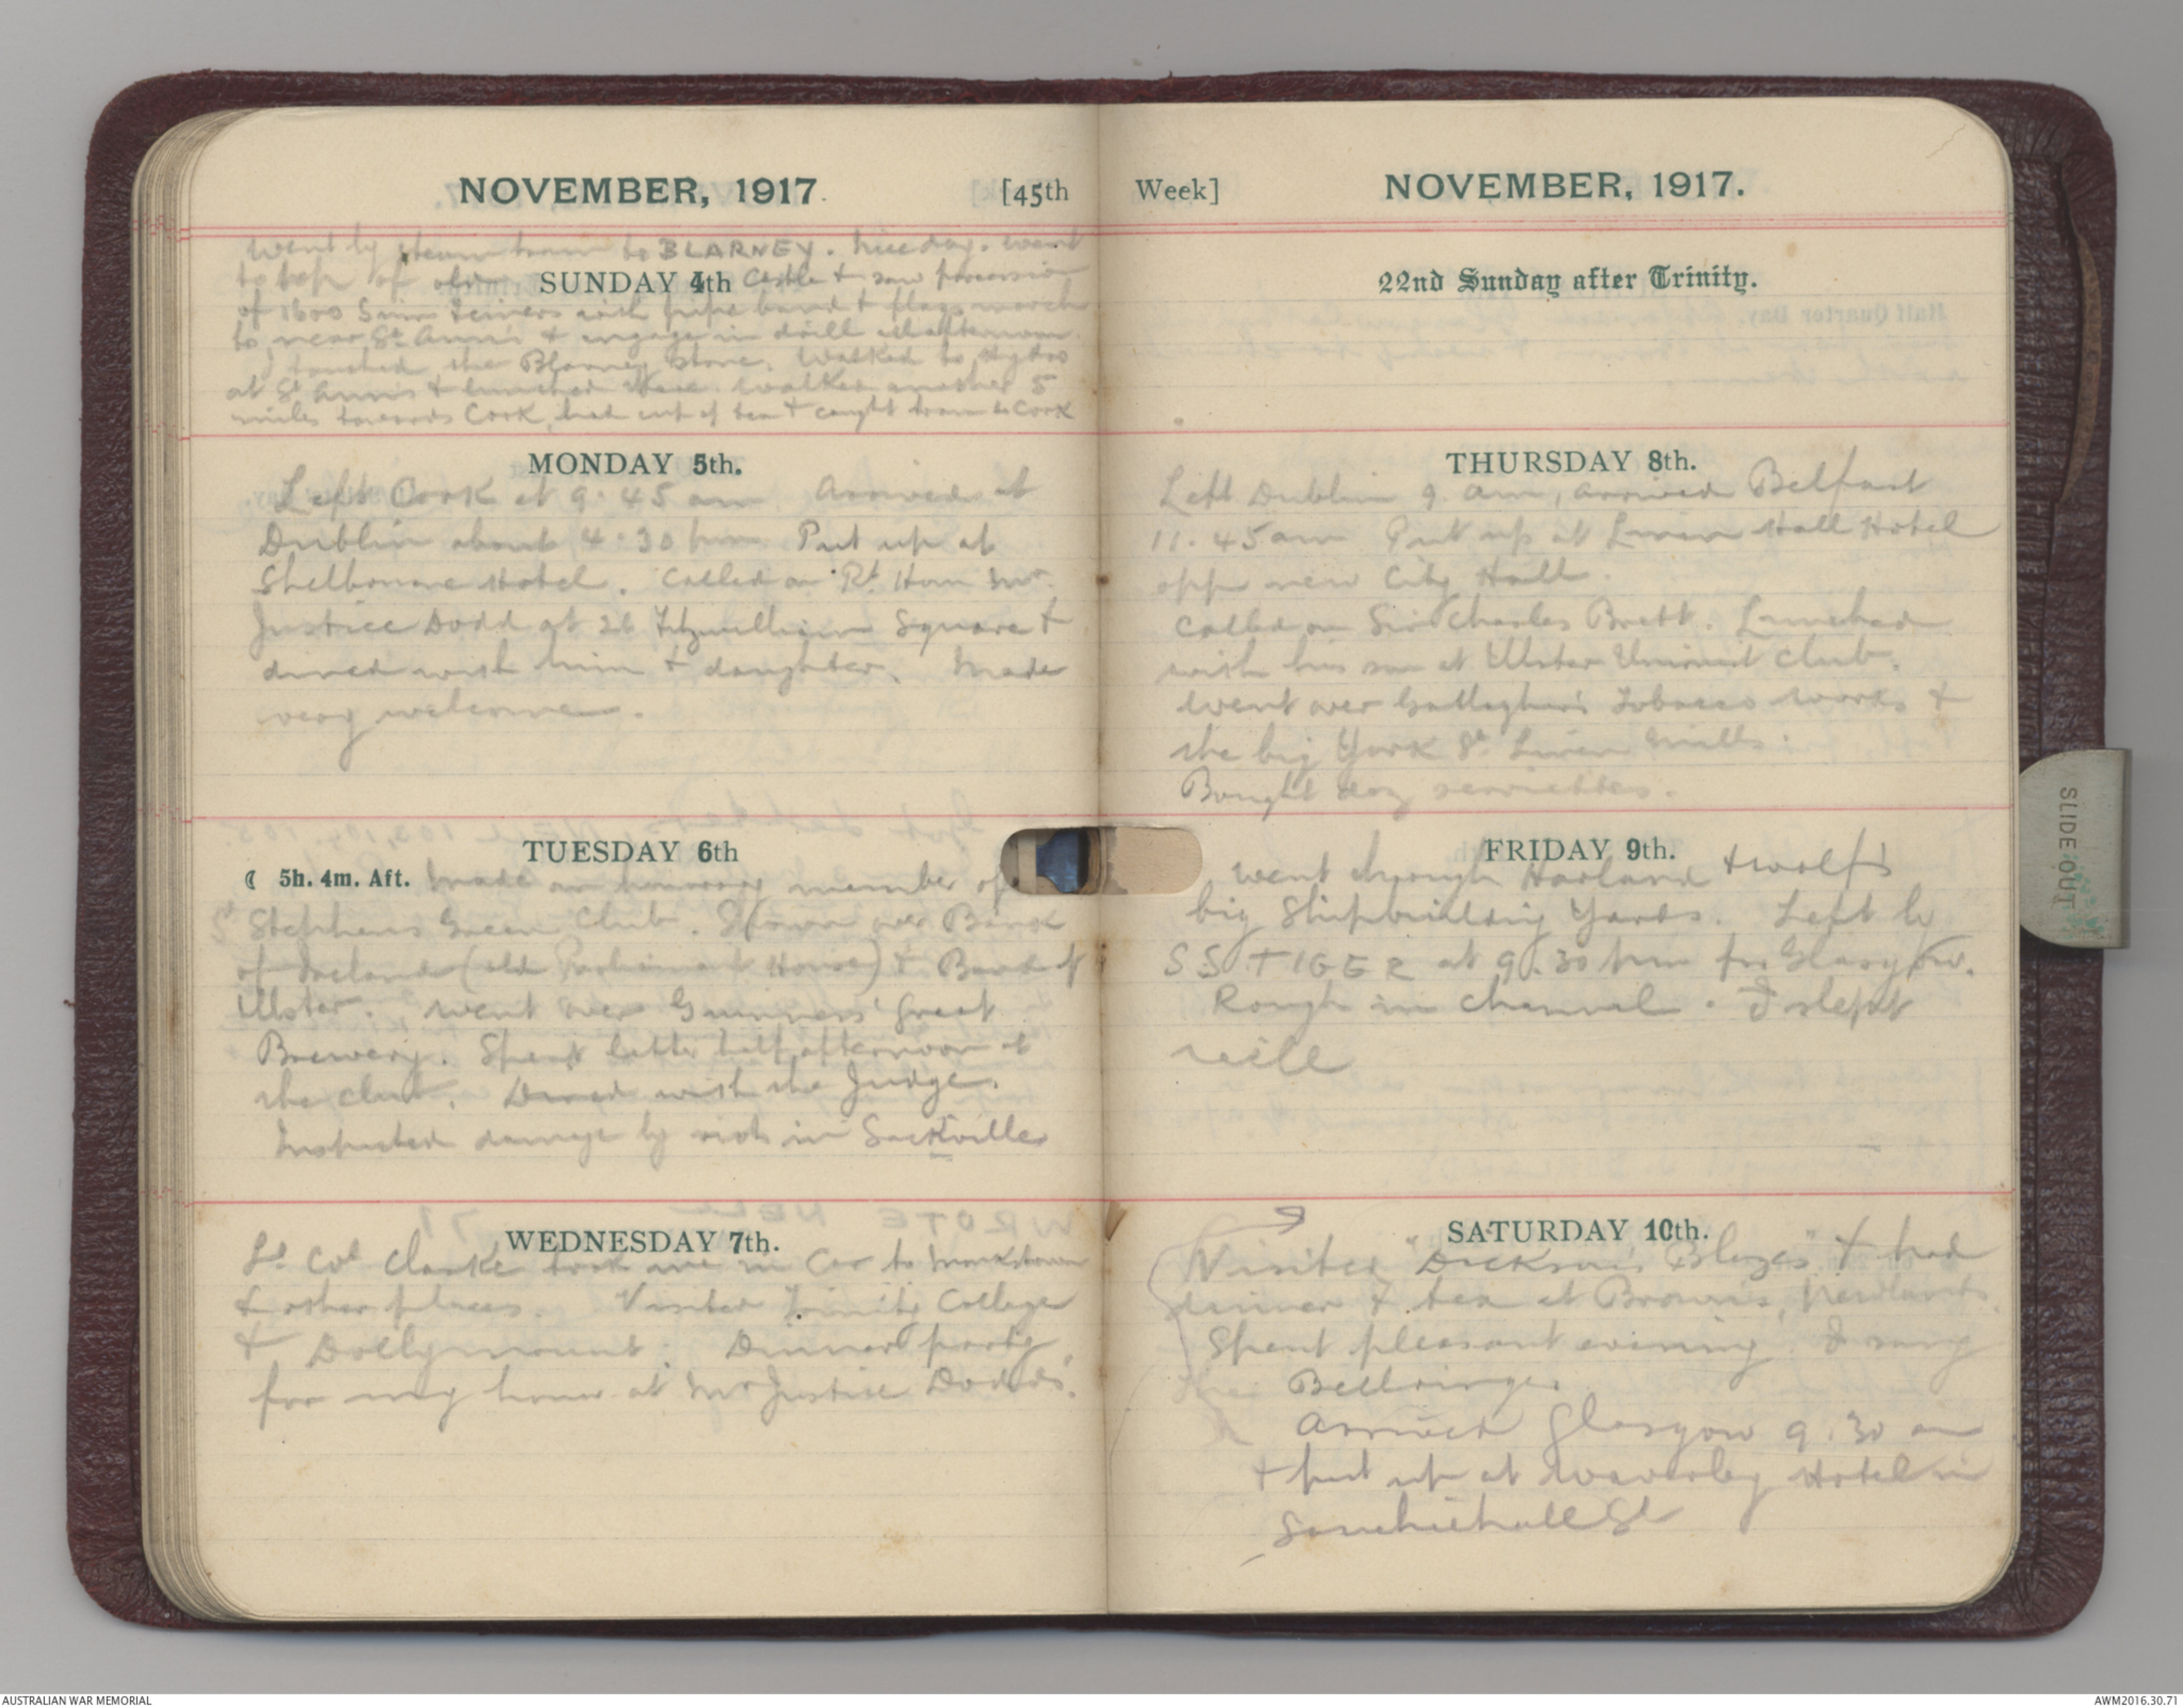 NOVEMBER, 1917. [45th
Went by steam tram to BLARNEY. Nice day. Went
to top of old Castle & saw procession
SUNDAY 4th
of 1600 Sinn Feiners with pipe band & flags march
to near St Ann's & engage in drill all afternoon
I touched the Blarney Stone. Walked to Hydro
at St Ann's & lunched there. Walked another 5
miles towards Cork, had cup of tea & caught tram to Cork
MONDAY 5th.
Left Cork at 9.45 am Arrived at
Dublin about 4.30 pm Put up at
Shelbourne Hotel. Called on Rt Hon Mr
Justice Dodd at 26 Fitzwilliam Square &
dined with him & daughter. Made
very welcome.
TUESDAY 6th
☾ 5h. 4m. Aft. Made an honorary member of
St Stephens Green Club. Shown over Bank
of Ireland (old Parliament House) & Bank of
Ulster. Went over Guinness' great
Brewery. Spent latter half afternoon at
the club. Dined with the Judge.
Inspected damage by riots in Sackville
WEDNESDAY 7th.
Lt Col Clarke took me in Car to Monkstown
& other places. Visited Trinity College
& Dollymount. Dinner party
for my honor at Mr Justice Dodds'.
Week] NOVEMBER, 1917.
22nd Sunday after Trinity.
THURSDAY 8th.
Left Dublin 9. am, arrived Belfast
11.45 am Put up at Linen Hall Hotel
opp new City Hall.
Called on Sir Charles Brett. Lunched
with his son at Ulster Unionist Club.
Went over Gallagher's Tobacco works &
the big York St Linen Mills.
Bought doz serviettes.
FRIDAY 9th.
Went through Harland & Wolf's
big Shipbuilding Yards. Left by
SS TIGER at 9.30 pm for Glasgow.
Rough in channel. I slept
well
SATURDAY 10th.
Visited "Dickson's Blazes" & had
dinner & tea at Brown's,
Spent pleasant evening. I sang
the Bellringer.
Arrived Glasgow 9.30 am
& put up at Waverley Hotel in
Sauchiehall St
SLIDE OUT
AUSTRALIAN WAR MEMORIAL
AWM2016.30.71